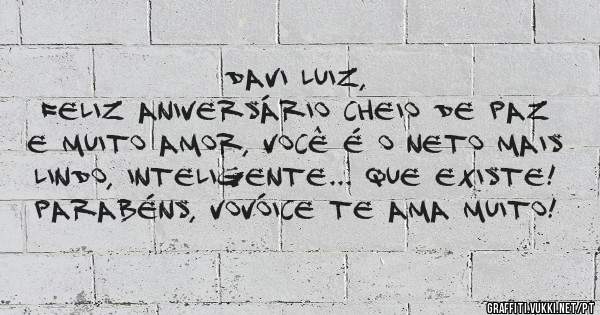 DAVI LUIZ,
FELIZ ANIVERSÁRIO CHEIO DE PAZ
E MUITO AMOR, VOCÊ É O NETO MAIS
LINDO, INTELIGENTE... QUE EXISTE!
PARABÉNS, VOVÓICE TE AMA MUITO!
GRAFFITI.VUKKI.NET/PT